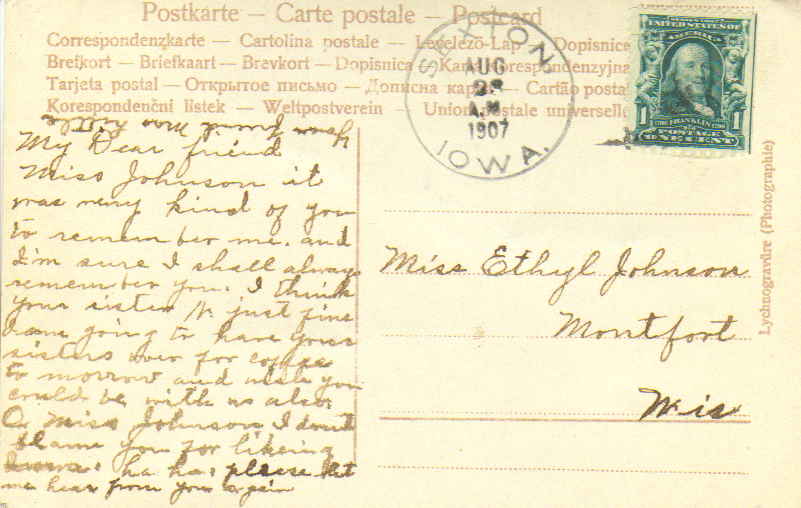 Postkarte — Carte postale — Postcard
Correspondenzkarte — Cartolina postale — Levelező-Lap — Dopisnice
Brefkort — Briefkaart — Brevkort — Dopisnica — Karta Korespondenzyjna
Tarjeta postal — Открытое письмо — Дописна карта — Cartão postal
Korespondenční lístek — Weltpostverein — Union postale universelle
SEXTON
AUG
A.M.
1907
IOWA.
UNITED STATES OF
AMERICA
FRANKLIN
POSTAGE
1 ONE CENT 1
your friend
My Dear friend
Miss Johnson it
was very kind of you
to remember me. and
I'm sure I shall always
remember you. I think
your sister is just fine
am going to have your
sisters over for coffee
to morrow and wish you
could be with us also.
O Miss Johnson I dont
blame you for likeing
Iowa. ha ha. please let
me hear from you again
Miss Ethyl Johnson
Montfort
Wis
Lychnogravüre (Photographie)